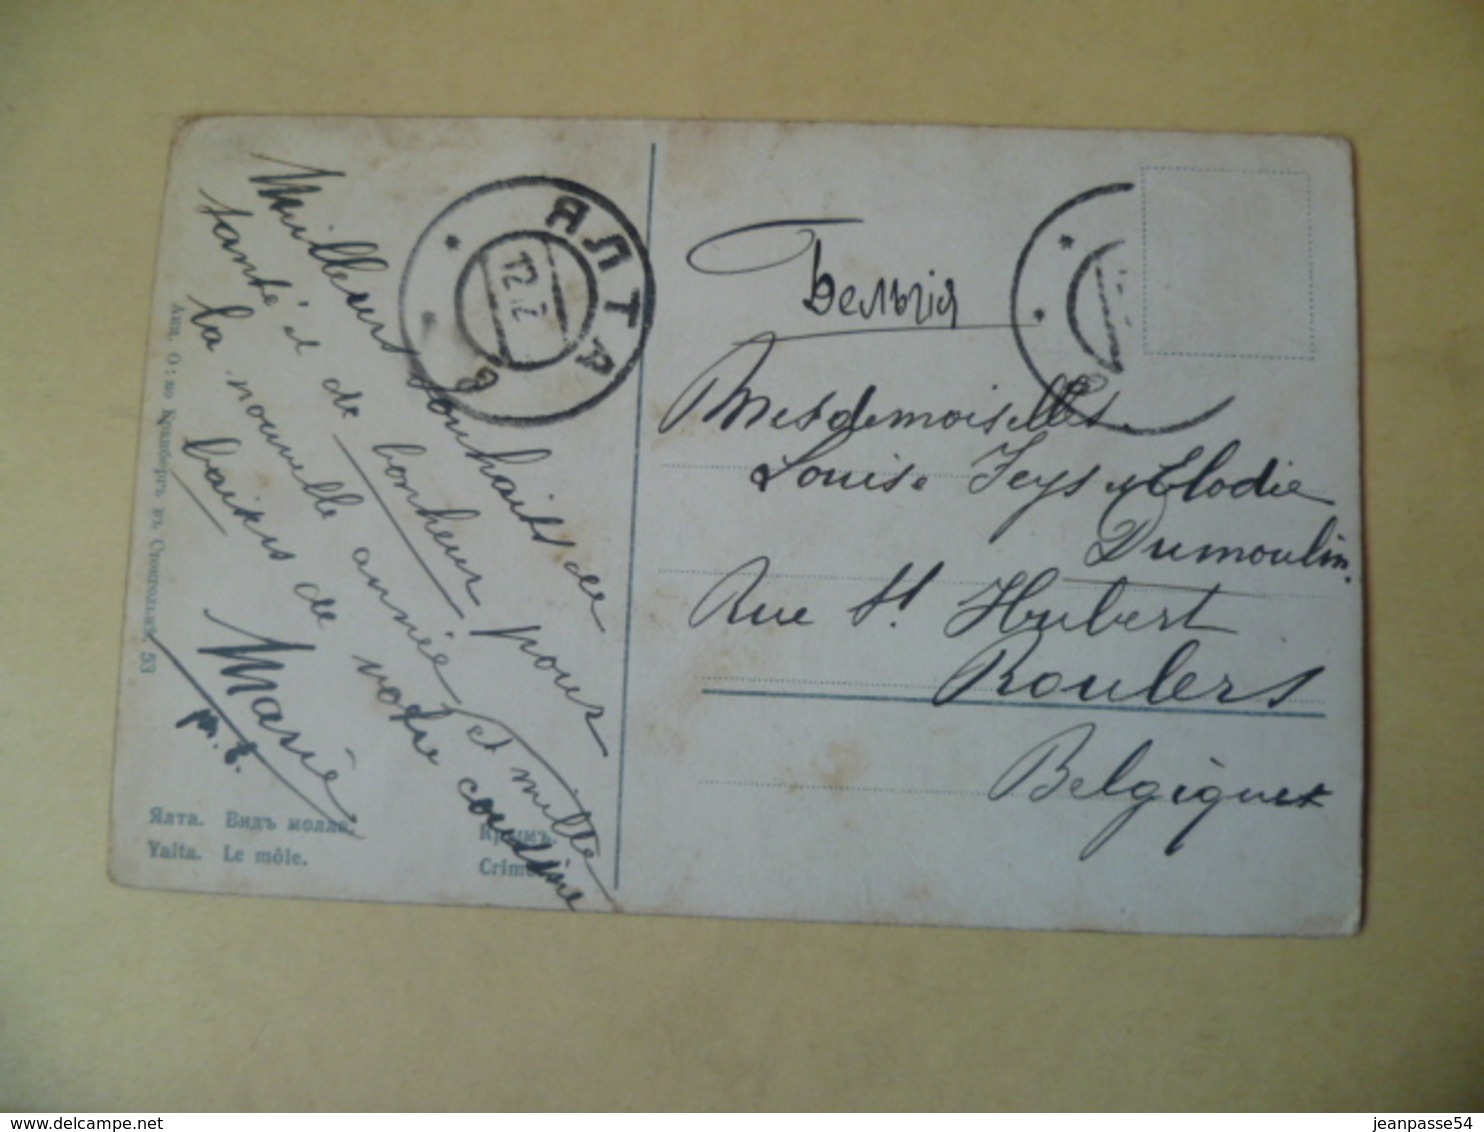 Meilleurs souhaits de
santé et de bonheur pour
la nouvelle année et mille
baisers de votre cousine
Marie
ЯЛТА
12.2
Акц. О-во Гранбергъ въ Стокгольмѣ 53
Ялта. Видъ молла.
Yalta. Le môle.
Крымъ.
Crimée
Бельгія
Mesdemoiselles
Louise Seys et Elodie
Dumoulin.
Rue St Hubert
Roulers
Belgique
jeanpasse54